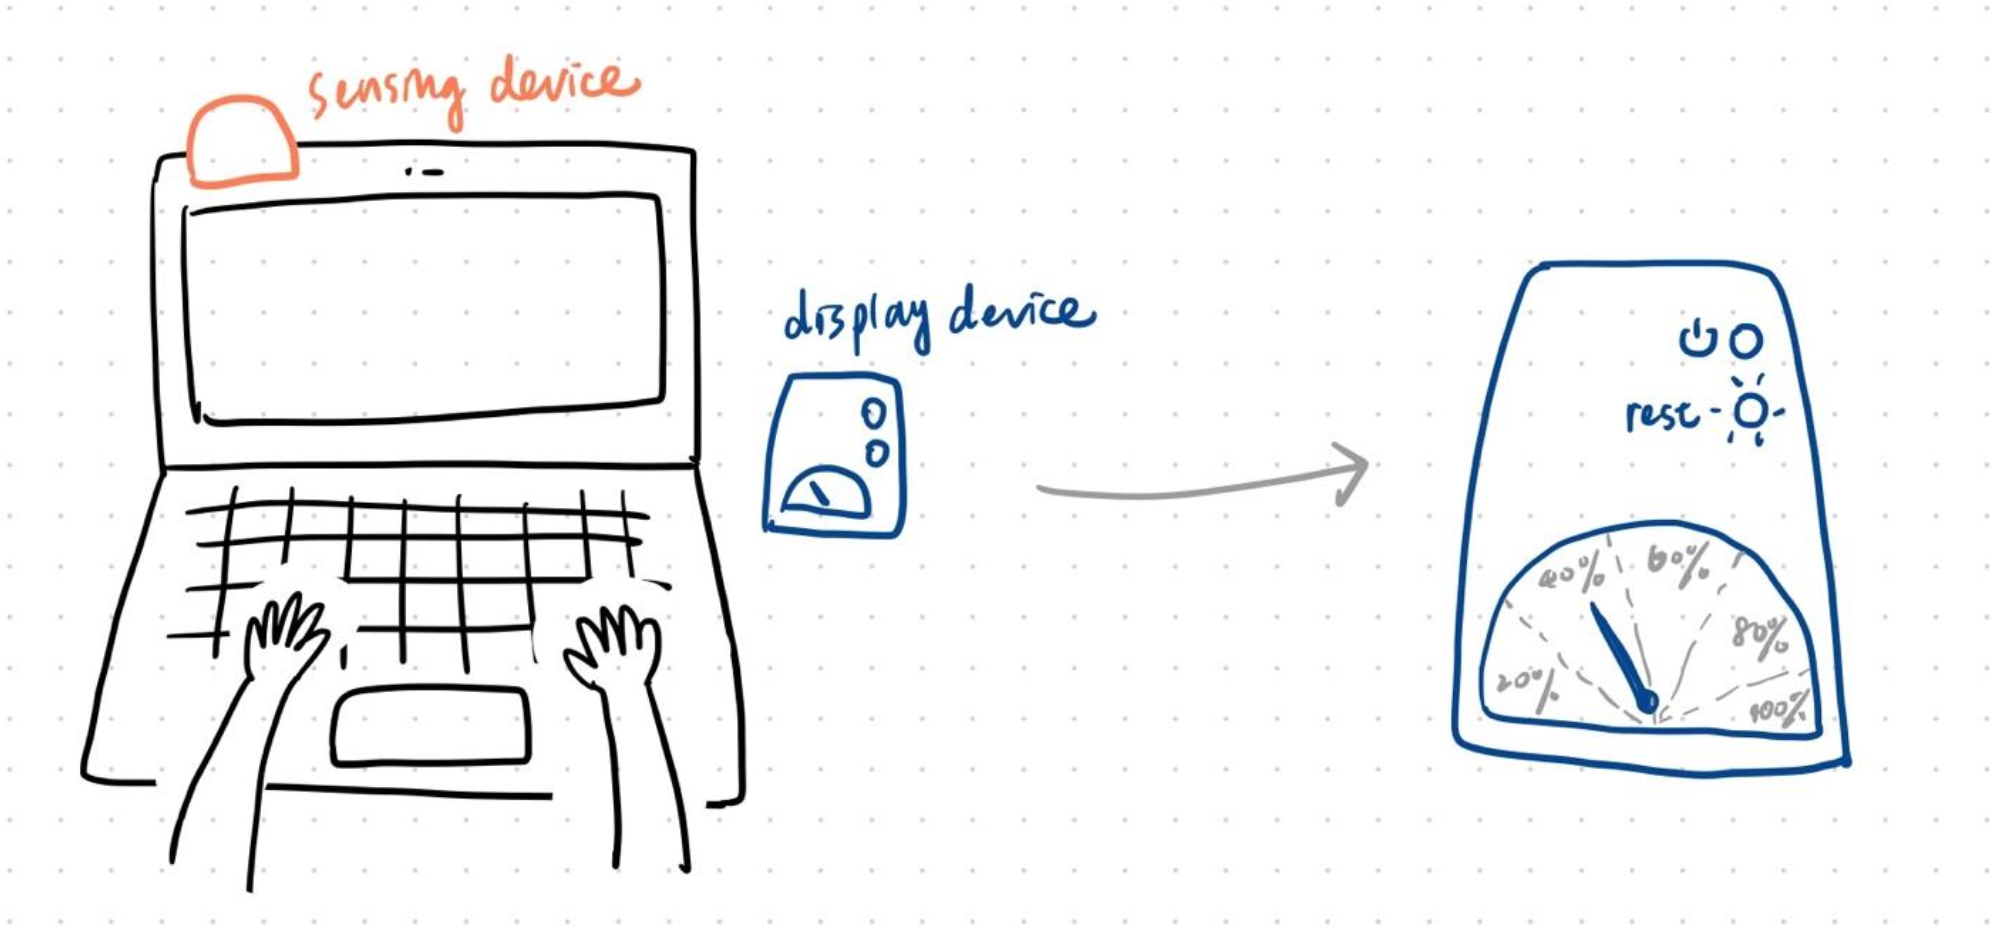 sensing device
display device
rest
20%
40%
60%
80%
100%